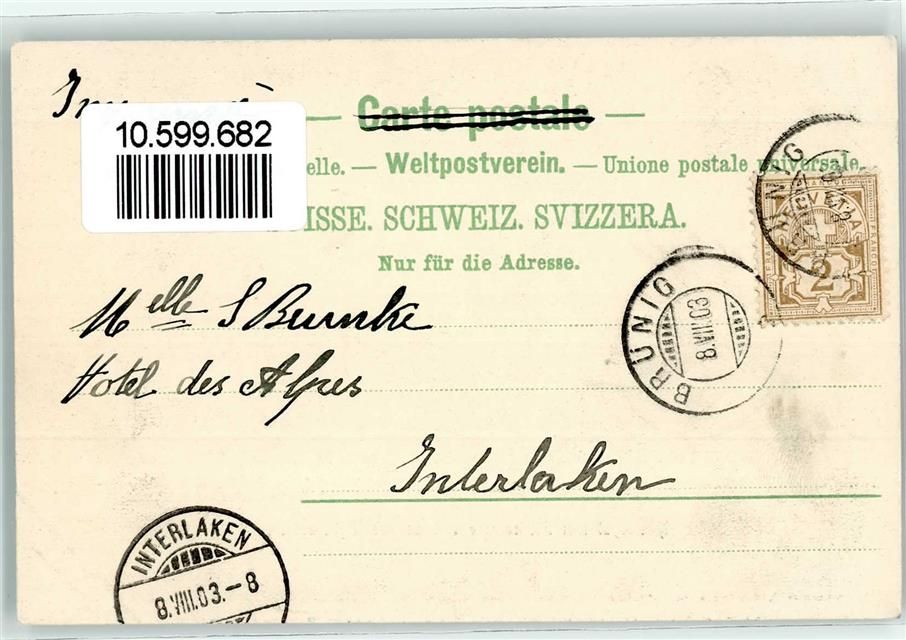 10.599.682
Carte postale
elle. — Weltpostverein. — Unione postale universale.
ISSE. SCHWEIZ. SVIZZERA.
Nur für die Adresse.
HELVETIA
FRANCO
2
BRÜNIG
8.VIII.03
Melle S Burnke
Hotel des Alpes
Interlaken
INTERLAKEN
8.VIII.03.-8